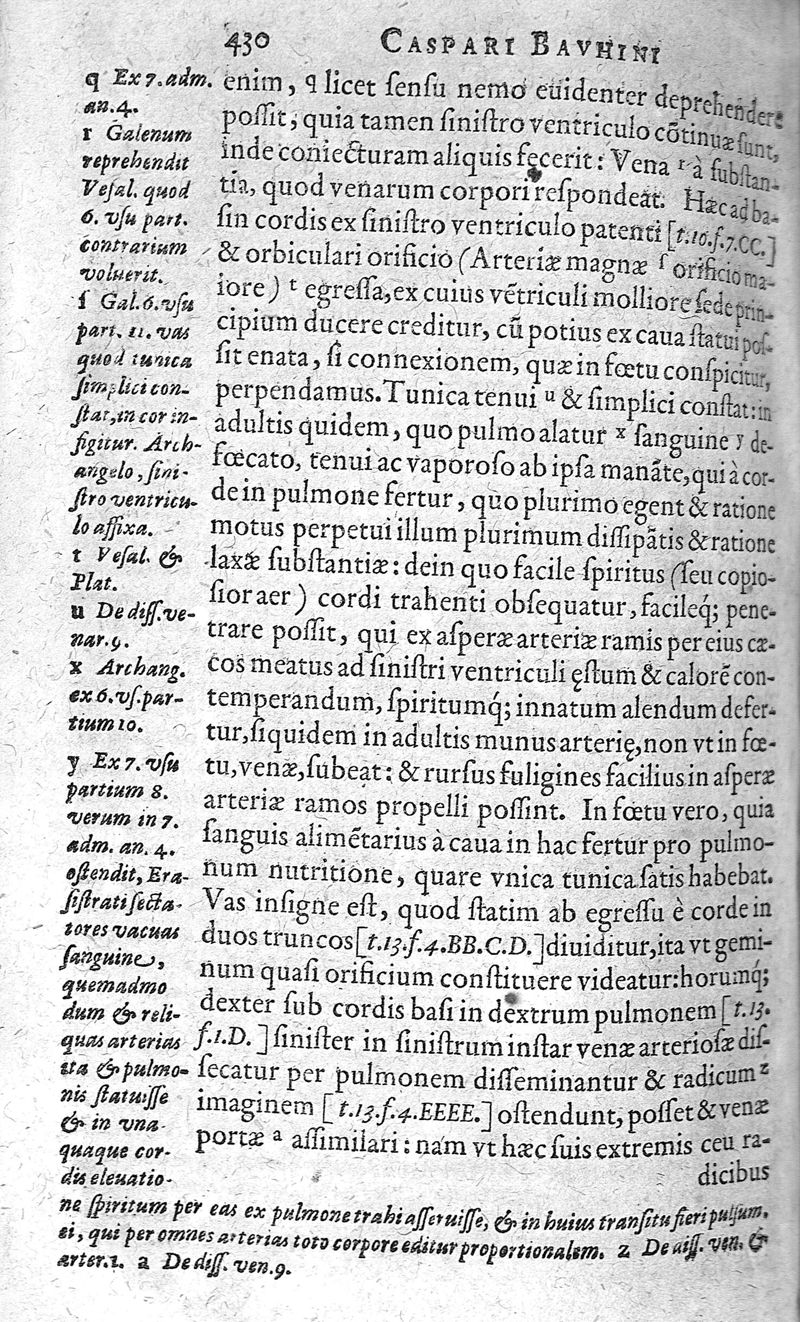 430 CASPARI BAVHINI
enim, q licet ſenſu nemo euidenter deprehendere
poſſit, quia tamen ſiniſtro ventriculo cõtinuæ ſunt,
inde coniecturam aliquis fecerit: Vena ʳ à ſubſtan-
tia, quod venarum corpori reſpondeat. Hæc ad ba-
ſin cordis ex ſiniſtro ventriculo patenti [t.10.f.7.CC.]
& orbiculari orificio (Arteriæ magnæ ᶠ orificio ma-
iore) ᵗ egreſſa, ex cuius vẽtriculi molliore ſede prin-
cipium ducere creditur, cũ potius ex caua ſtatui poſ-
ſit enata, ſi connexionem, quæ in fœtu conſpicitur,
perpendamus. Tunica tenui ᵘ & ſimplici conſtat: in
adultis quidem, quo pulmo alatur ˣ ſanguine ʸ de-
fœcato, tenui ac vaporoſo ab ipſa manãte, qui à cor-
de in pulmone fertur, quo plurimo egent & ratione
motus perpetui illum plurimum diſſipãtis & ratione
laxæ ſubſtantiæ: dein quo facile ſpiritus (ſeu copio-
ſior aer) cordi trahenti obſequatur, facileq́; pene-
trare poſſit, qui ex aſperæ arteriæ ramis per eius cæ-
cos meatus ad ſiniſtri ventriculi ęſtum & calorẽ con-
temperandum, ſpiritumq́; innatum alendum defer-
tur, ſiquidem in adultis munus arterię, non vt in fœ-
tu, venæ, ſubeat: & rurſus fuligines facilius in aſperæ
arteriæ ramos propelli poſſint. In fœtu vero, quia
ſanguis alimẽtarius à caua in hac fertur pro pulmo-
num nutritione, quare vnica tunica ſatis habebat.
Vas inſigne eſt, quod ſtatim ab egreſſu è corde in
duos truncos [t.13.f.4.BB.C.D.] diuiditur, ita vt gemi-
num quaſi orificium conſtituere videatur: horumq́;
dexter ſub cordis baſi in dextrum pulmonem [t.13.
f.1.D.] ſiniſter in ſiniſtrum inſtar venæ arterioſæ diſ-
ſecatur per pulmonem diſſeminantur & radicum ᶻ
imaginem [t.13.f.4.EEEE.] oſtendunt, poſſet & venæ
portæ ᵃ aſſimilari: nam vt hæc ſuis extremis ceu ra-
dicibus
q Ex 7. adm.
an. 4.
r Galenum
reprehendit
Veſal. quod
6. vſu part.
contrarium
voluerit.
ſ Gal. 6. vſu
part. 11. vas
quod tunica
ſimplici con-
ſtat, in cor in-
figitur. Arch-
angelo, ſini-
ſtro ventricu-
lo affixa.
t Veſal. &
Plat.
u De diſſ. ve-
nar. 9.
x Archang.
ex 6. vſ. par-
tium 10.
y Ex 7. vſu
partium 8.
verum in 7.
adm. an. 4.
oſtendit, Era-
ſiſtrati ſecta-
tores vacuas
ſanguine,
quemadmo
dum & reli-
quas arterias
ita & pulmo-
nis ſtatuiſſe
& in vna-
quaque cor-
dis eleuatio-
ne ſpiritum per eas ex pulmone trahi aſſeruiſſe, & in huius tranſitu fieri pulſum,
ei, qui per omnes arterias toto corpore editur proportionalem. z De diſſ. ven. &
arter. 1. a De diſſ. ven. 9.